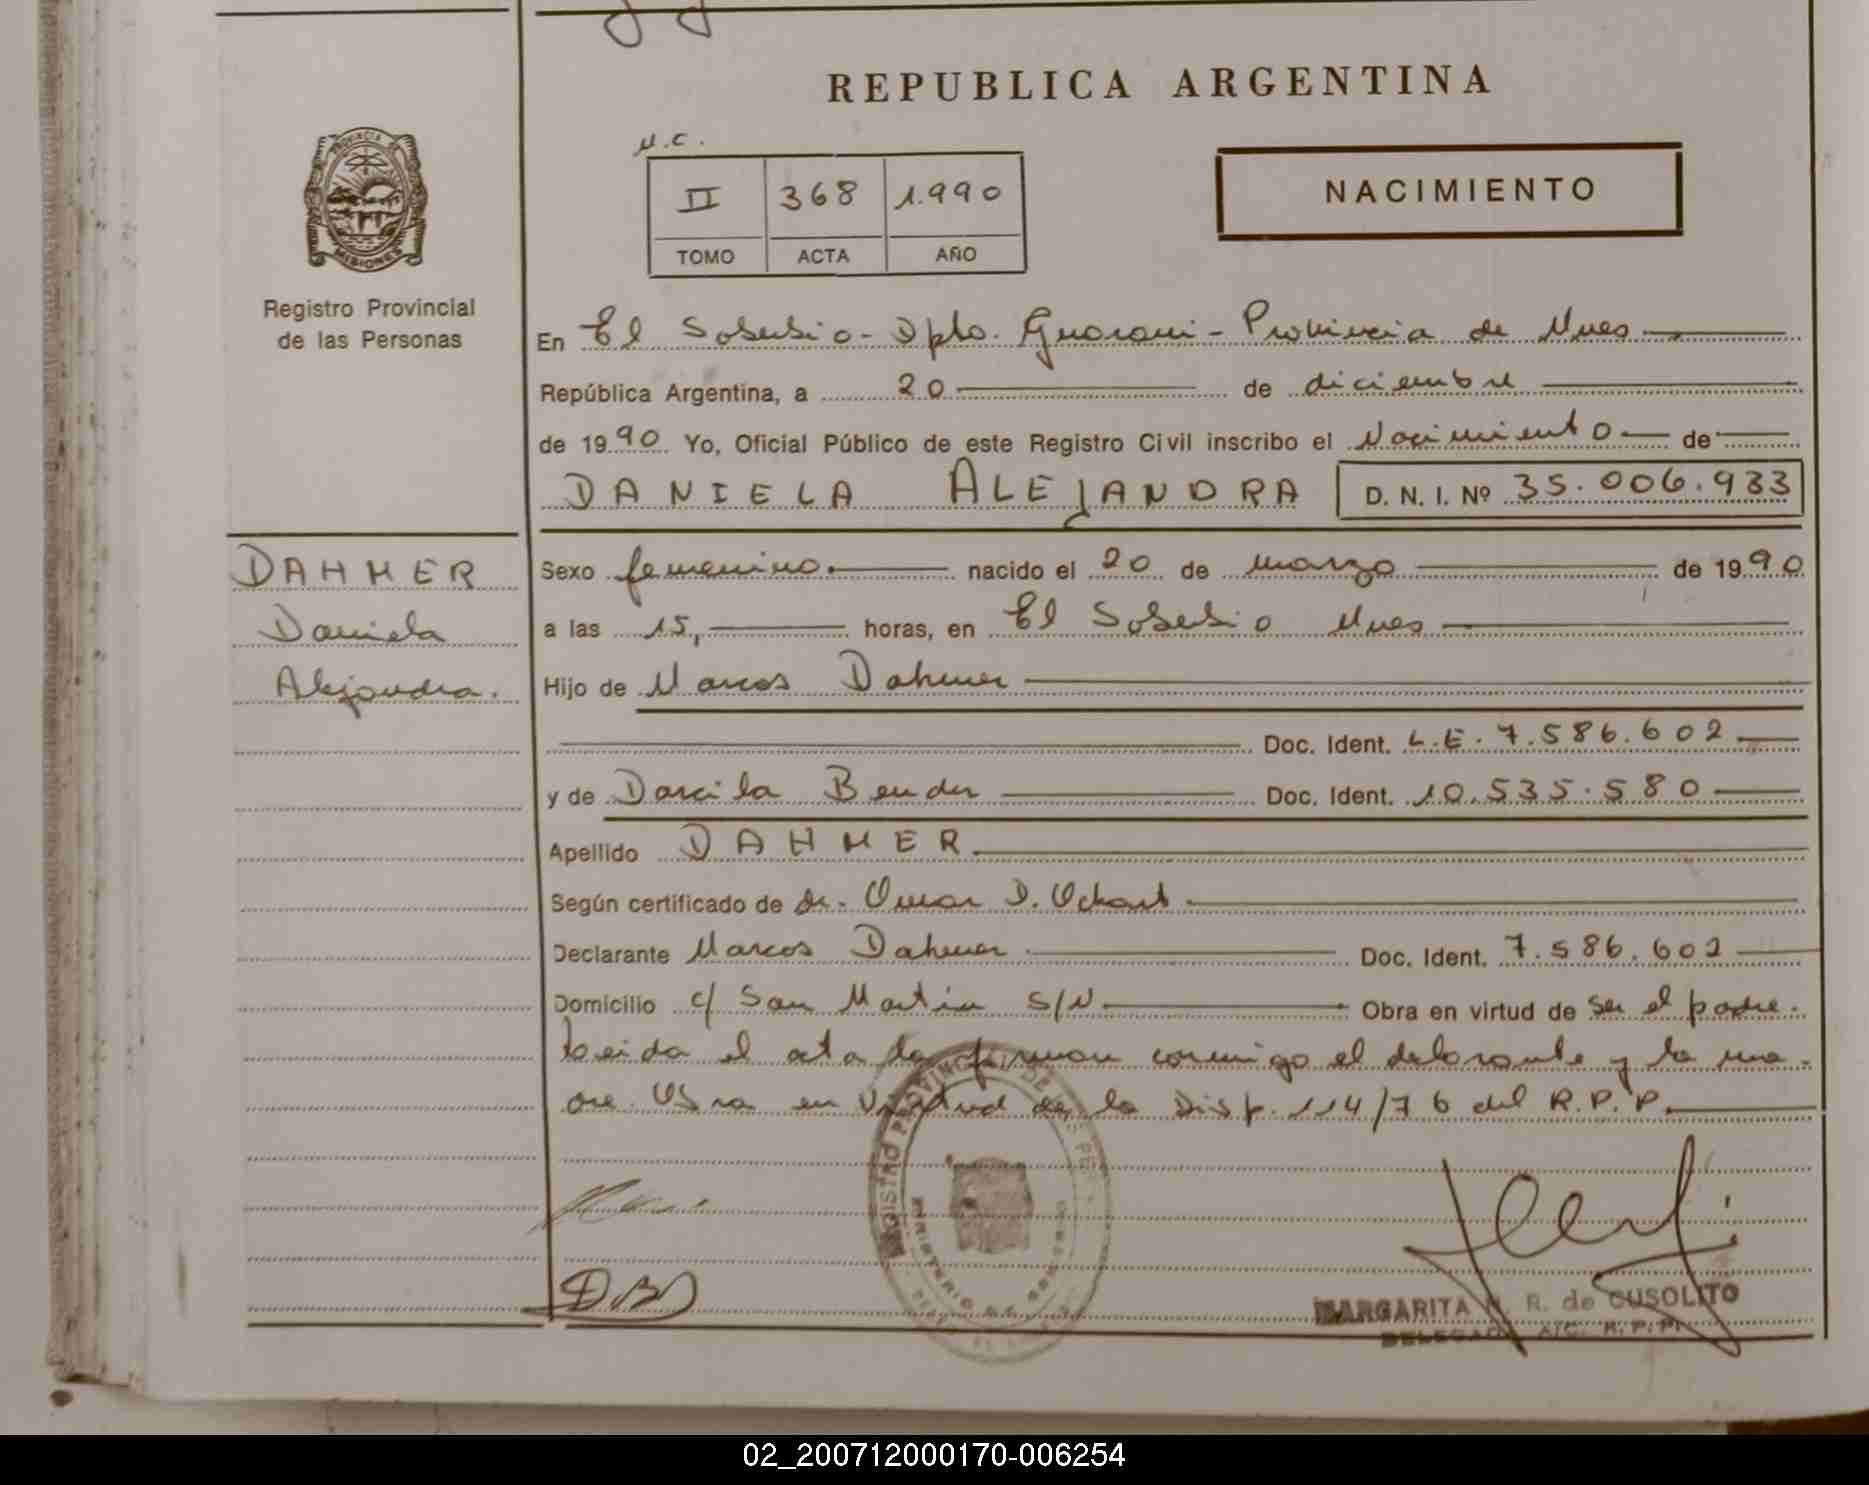 REPUBLICA ARGENTINA
PROVINCIA DE MISIONES
Registro Provincial
de las Personas
N.C.
II 368 1.990
TOMO ACTA AÑO
NACIMIENTO
En El Soberbio - Dpto. Guarani - Provincia de Mnes
República Argentina, a 20 de diciembre
de 1990 Yo, Oficial Público de este Registro Civil inscribo el Nacimiento de
DANIELA ALEJANDRA D. N. I. Nº 35.006.933
DAHMER
Daniela
Alejandra.
Sexo femenino. nacido el 20 de marzo de 1990
a las 15, horas, en El Soberbio Mnes
Hijo de Marcos Dahmer
Doc. Ident. L.E. 7.586.602
y de Darcila Bender Doc. Ident. 10.535.580
Apellido DAHMER
Según certificado de dr. Omar D. Ochart
Declarante Marcos Dahmer Doc. Ident. 7.586.602
Domicilio c/ San Martin S/N Obra en virtud de ser el padre.
Leida el acta la firman conmigo el declarante y la ma-
dre. Obra en virtud de la Disp. 114/76 del R.P.P.
REGISTRO PROVINCIAL DE LAS PER
MINISTERIO DE
DB
MARGARITA R. de CUSOLITO
DELEGADA A/C. R.P.P.
02_200712000170-006254